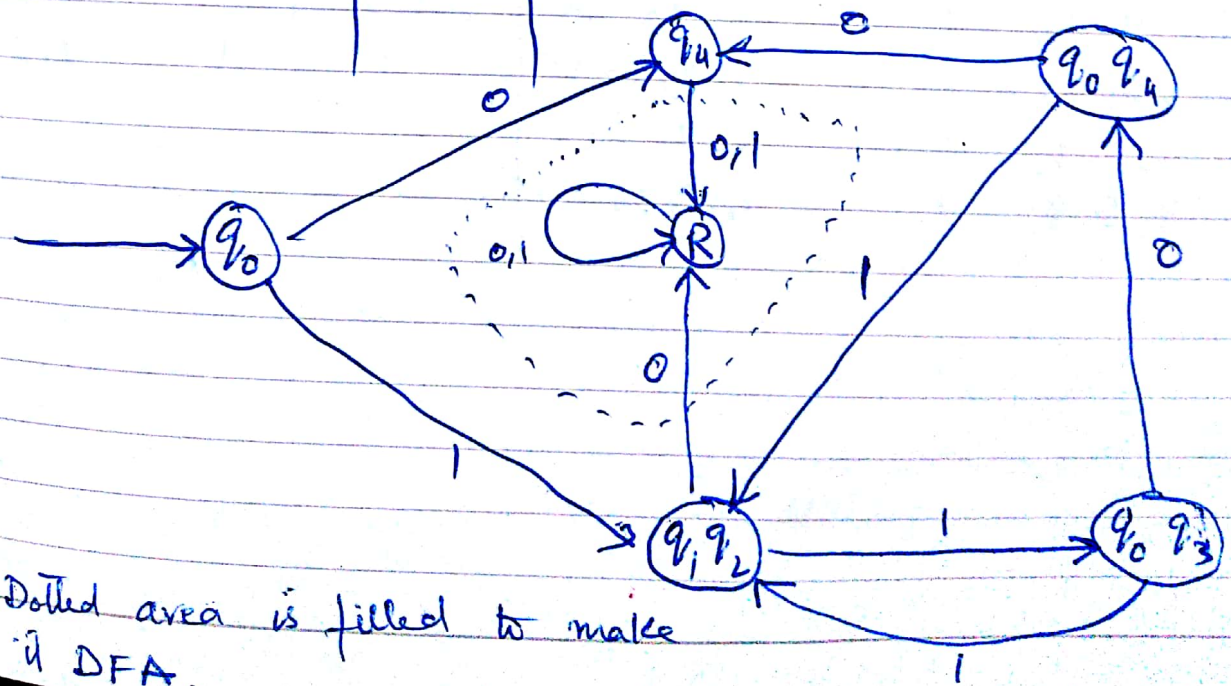 0
q4
q0 q4
0
0,1
q0
0,1
R
1
0
0
1
q1 q2
1
q0 q3
1
Dotted area is filled to make
it DFA.